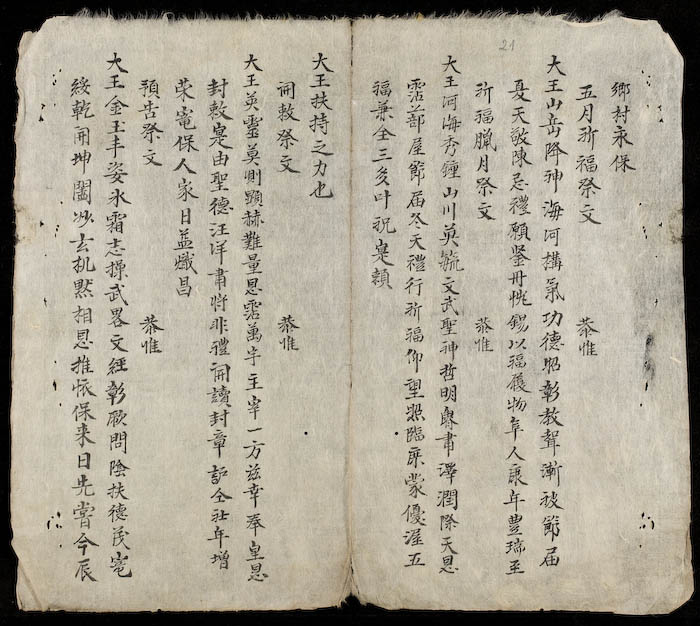 21
鄉村永保
五月祈福祭文 恭惟
大王山岳降神海河搆氣功德昭彰教聲漸被節届
夏天敬陳忌禮願鑒丹忱錫以福履物阜人康年豊瑞至
祈福臘月祭文 恭惟
大王河海秀鐘山川英毓文武聖神哲明睿肅澤潤際天恩
霑蔀屋節届冬天禮行祈福仰望照臨庶蒙優渥五
福兼全三多叶祝寔賴
大王扶持之力也
開敕祭文 恭惟
大王英靈莫測顯赫難量恩霑萬宇主宰一方兹幸奉皇恩
封敕寔由聖德汪洋肅將非禮開讀封章 仝社年增
荣寵保人家日益熾昌
預告祭文 恭惟
大王金玉丰姿氷霜志操武畧文經彰厥問陰扶德茂寵
綏乾開坤闔妙玄机黙相恩推恢保来日先嘗今辰